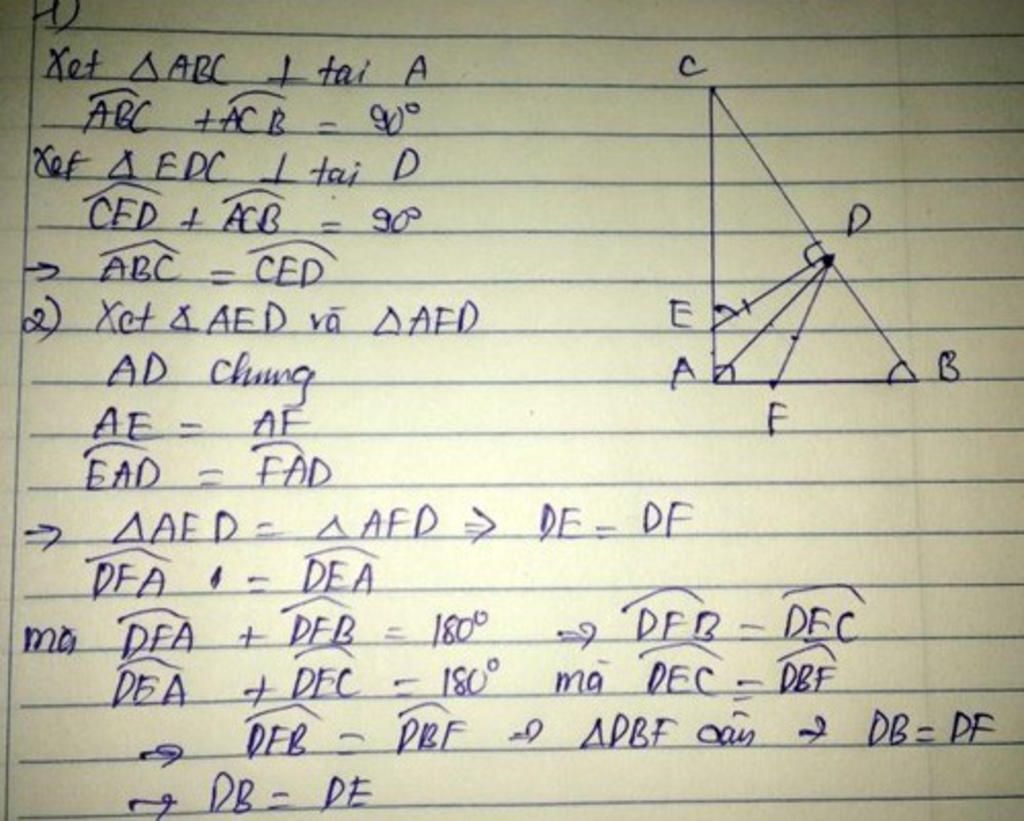 1)
Xet △ABC ⊥ tai A
ABC + ACB = 90°
Xet △EDC ⊥ tai D
CED + ACB = 90°
→ ABC = CED
2) Xet △AED và △AFD
AD chung
AE = AF
EAD = FAD
⇒ △AED = △AFD ⇒ DE = DF
DFA = DEA
mà DFA + DFB = 180° ⇒ DFB = DEC
DEA + DEC = 180° mà DEC = DBF
⇒ DFB = DBF ⇒ △DBF cân ⇒ DB = DF
⇒ DB = DE
C
D
E
A
B
F